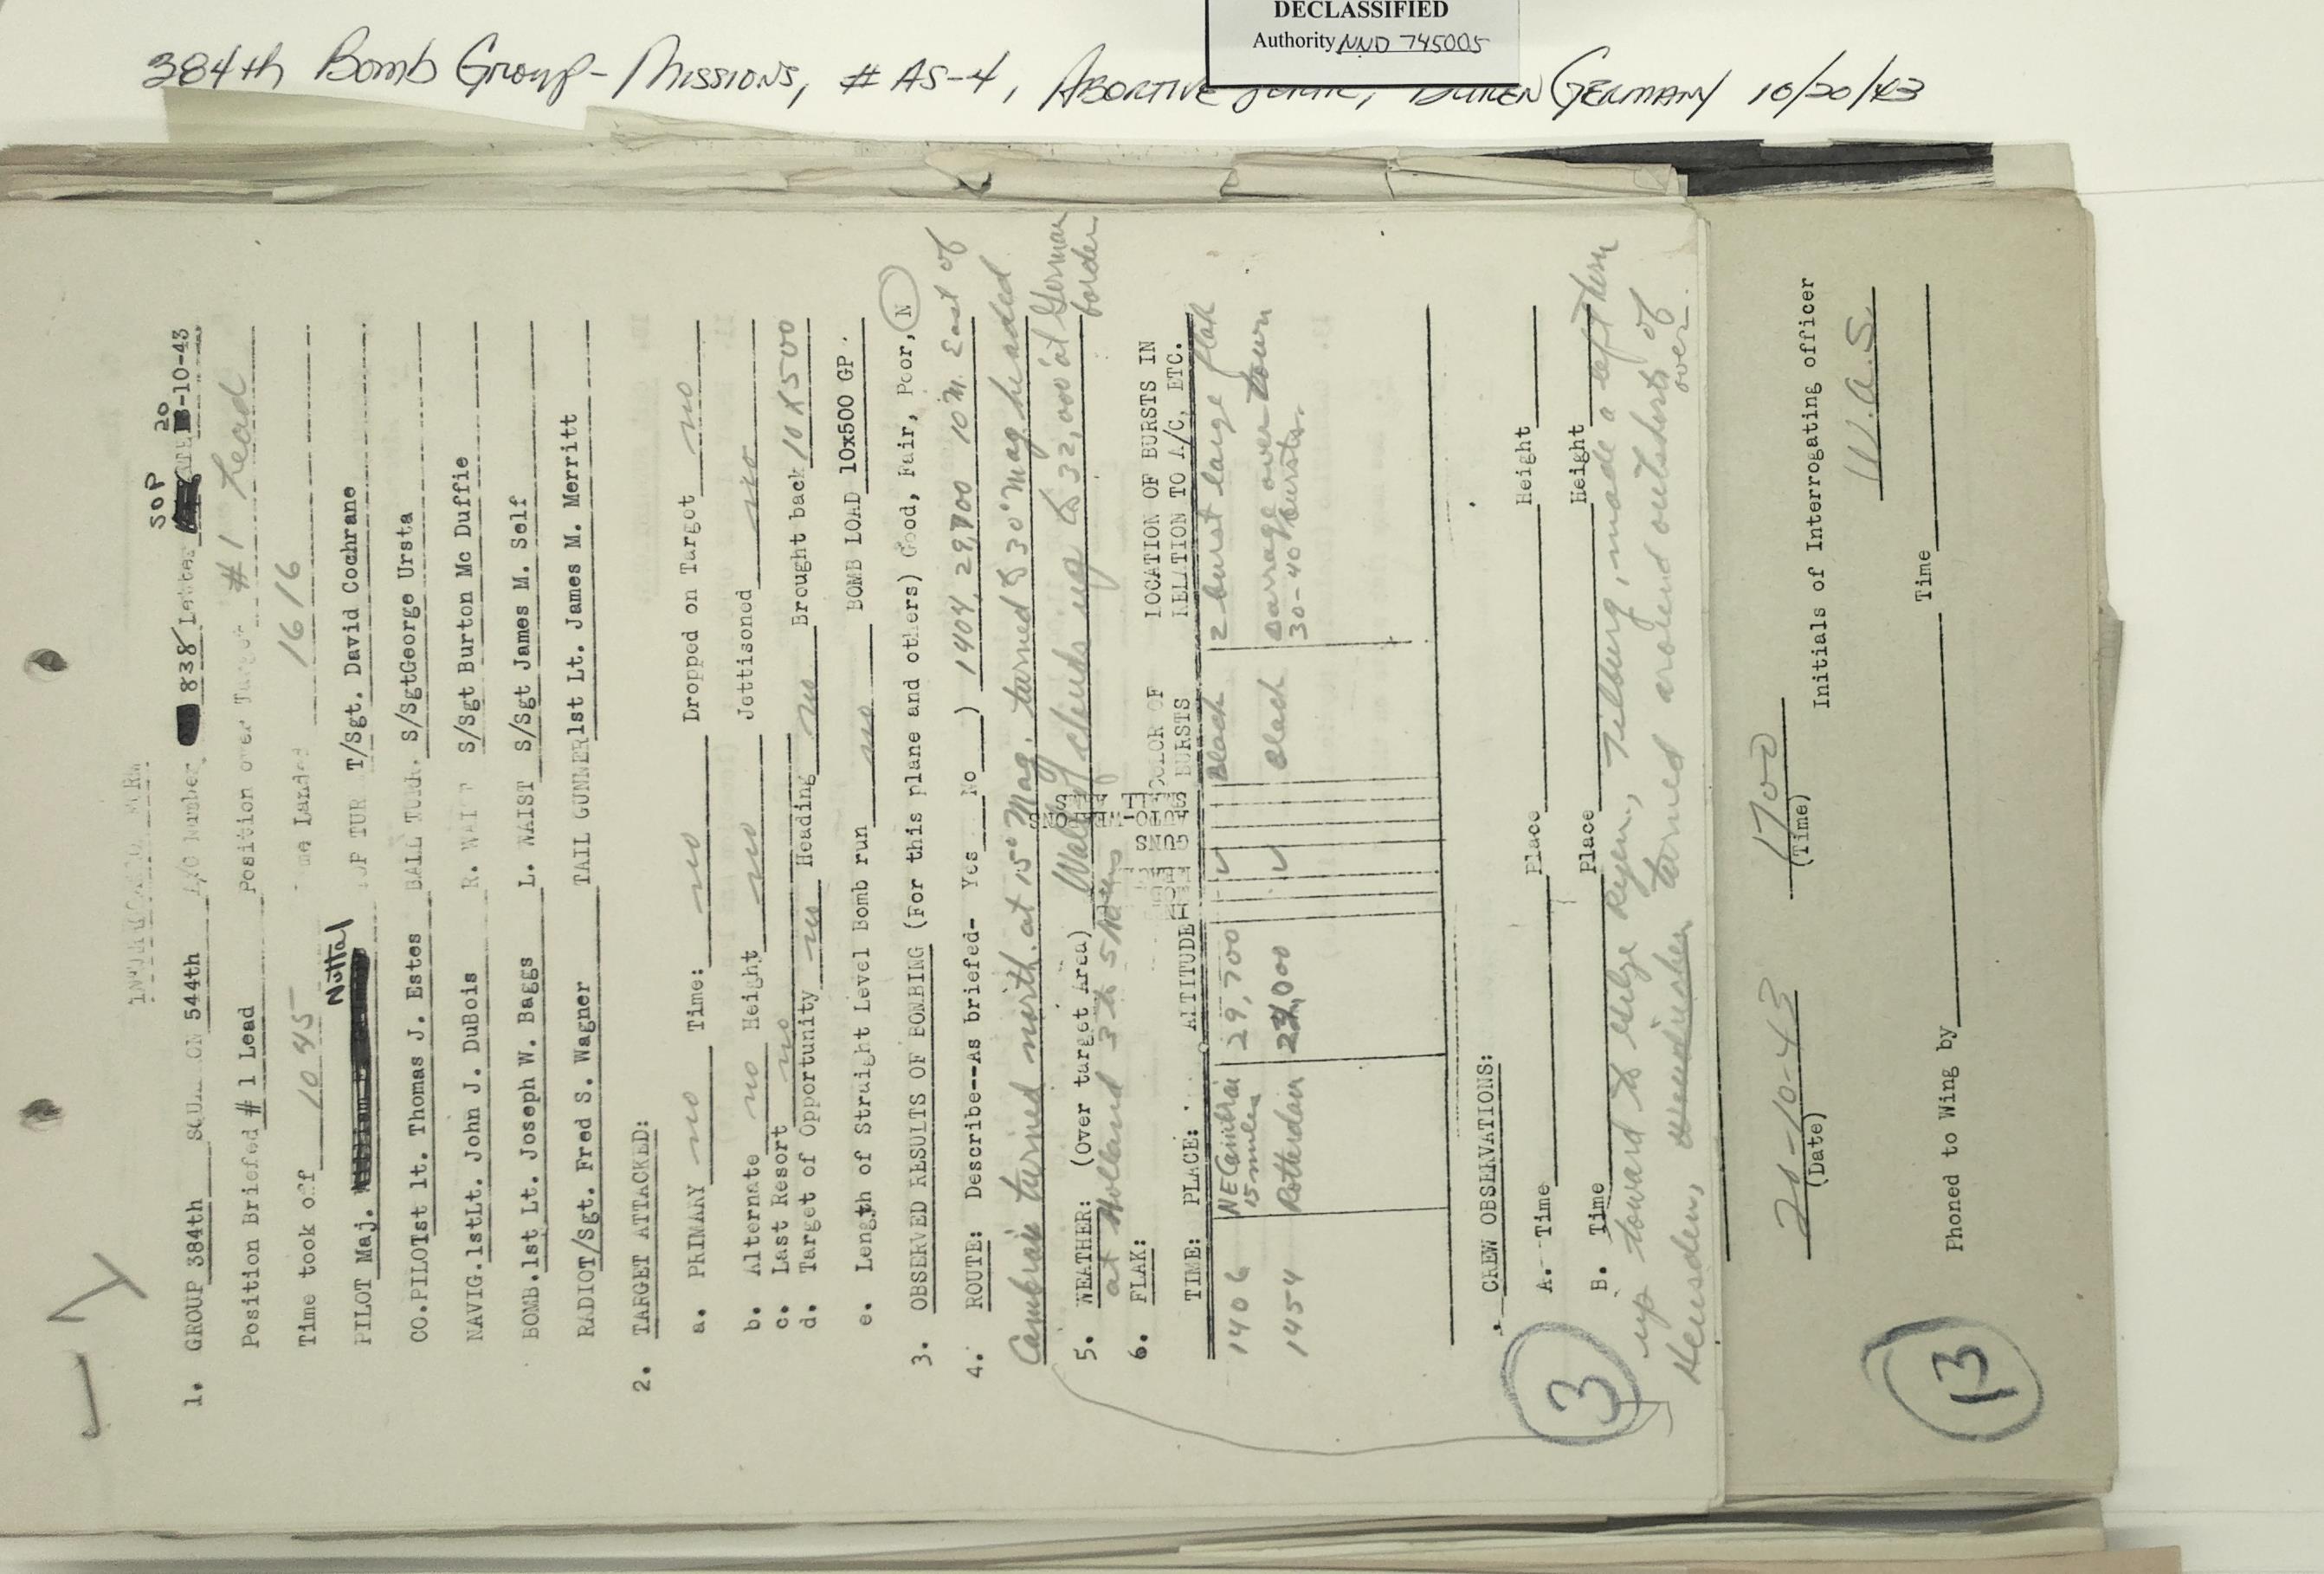 DECLASSIFIED
Authority NND 745005
384th Bomb Group - Missions, # AS-4, Abortive Germany 10/20/43
SOP 20
1. GROUP 384th SQUADRON 544th A/C Number 838 Letter -10-43
Position Briefed # 1 Lead Position over Target #1 Lead
Time took off 1045 Time Landed 1616
Nuttal
PILOT Maj. TOP TUR T/Sgt. David Cochrane
CO.PILOT 1st lt. Thomas J. Estes BALL TURR. S/Sgt George Ursta
NAVIG. 1stLt. John J. DuBois R. WAIST S/Sgt Burton Mc Duffie
BOMB. 1st Lt. Joseph W. Baggs L. WAIST S/Sgt James M. Self
RADIO T/Sgt. Fred S. Wagner TAIL GUNNER 1st Lt. James M. Merritt
2. TARGET ATTACKED:
a. PRIMARY no Time: no Dropped on Target no
b. Alternate no Height no Jettisoned no
c. Last Resort no
d. Target of Opportunity no Heading no Brought back 10 X 500
e. Length of Straight Level Bomb run no BOMB LOAD 10x500 GP.
3. OBSERVED RESULTS OF BOMBING (For this plane and others) Good, Fair, Poor, N
4. ROUTE: Describe--As briefed- Yes No ) 1404, 29,700 10 M. East of
Cambrai turned north at 15° Mag. turned to 30° Mag headed
5. WEATHER: (Over target Area) Wall of clouds up to 32,000' at German border
at Holland 3 to 5
6. FLAK:
TIME: PLACE: ALTITUDE GUNS COLOR OF BURSTS LOCATION OF BURSTS IN RELATION TO A/C, ETC.
1406 NE Cambrai 15 miles 29,700 ✓ Black 2 burst large flak
1454 Rotterdam ,000 ✓ Black barrage over town
30-40 bursts.
CREW OBSERVATIONS:
A. Time Place Height
B. Time Place Height
up toward to Rijen, Tilburg, made a left turn
Heusden, turned around outskirts of
over
3
20-10-43 1700 W.A.S.
(Date) (Time) Initials of Interrogating officer
Phoned to Wing by Time
13